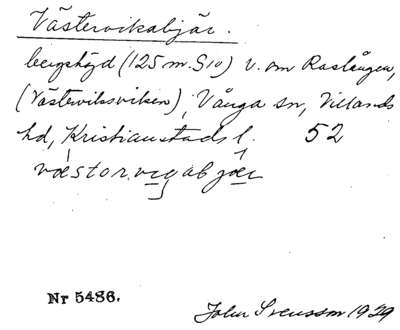 Västervikabjär.
bergshöjd (125 m. S10) V. om Raslången,
(Västerviksviken), Vånga sn, Villands
hd, Kristianstads l. 52
Nr 5486.
John Svensson 1929